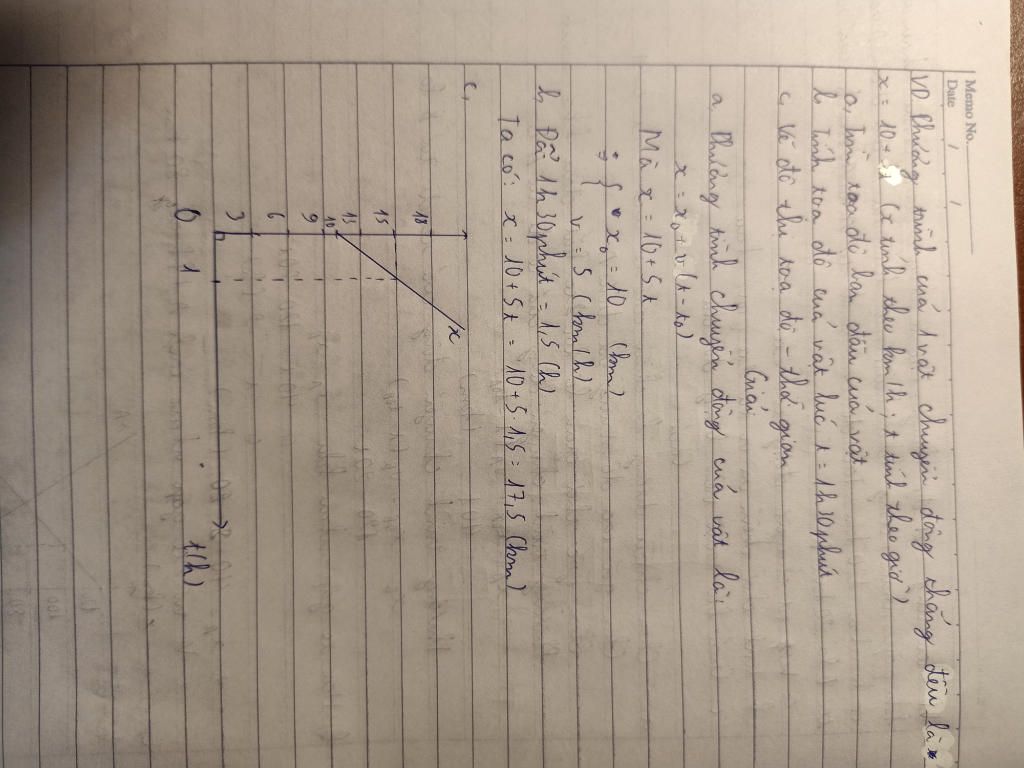 Memo No.
Date / /
VD Phương trình của 1 vật chuyển động thẳng đều là
x = 10 + (x tính theo km/h. t tính theo giờ)
a, Tìm toạ độ ban đầu của vật
b, Tính toạ độ của vật lúc t = 1h30phút
c, Vẽ đồ thị toạ độ - thời gian
Giải
a. Phương trình chuyển động của vật là:
x = x₀ + v(t - t₀)
Mà x = 10 + 5t
{ x₀ = 10 (km)
v = 5 (km/h)
b, Đổi 1h30phút = 1,5 (h)
Ta có: x = 10 + 5t = 10 + 5. 1,5 = 17,5 (km)
c,
x
18
15
13
10
9
6
3
0 1 t(h)